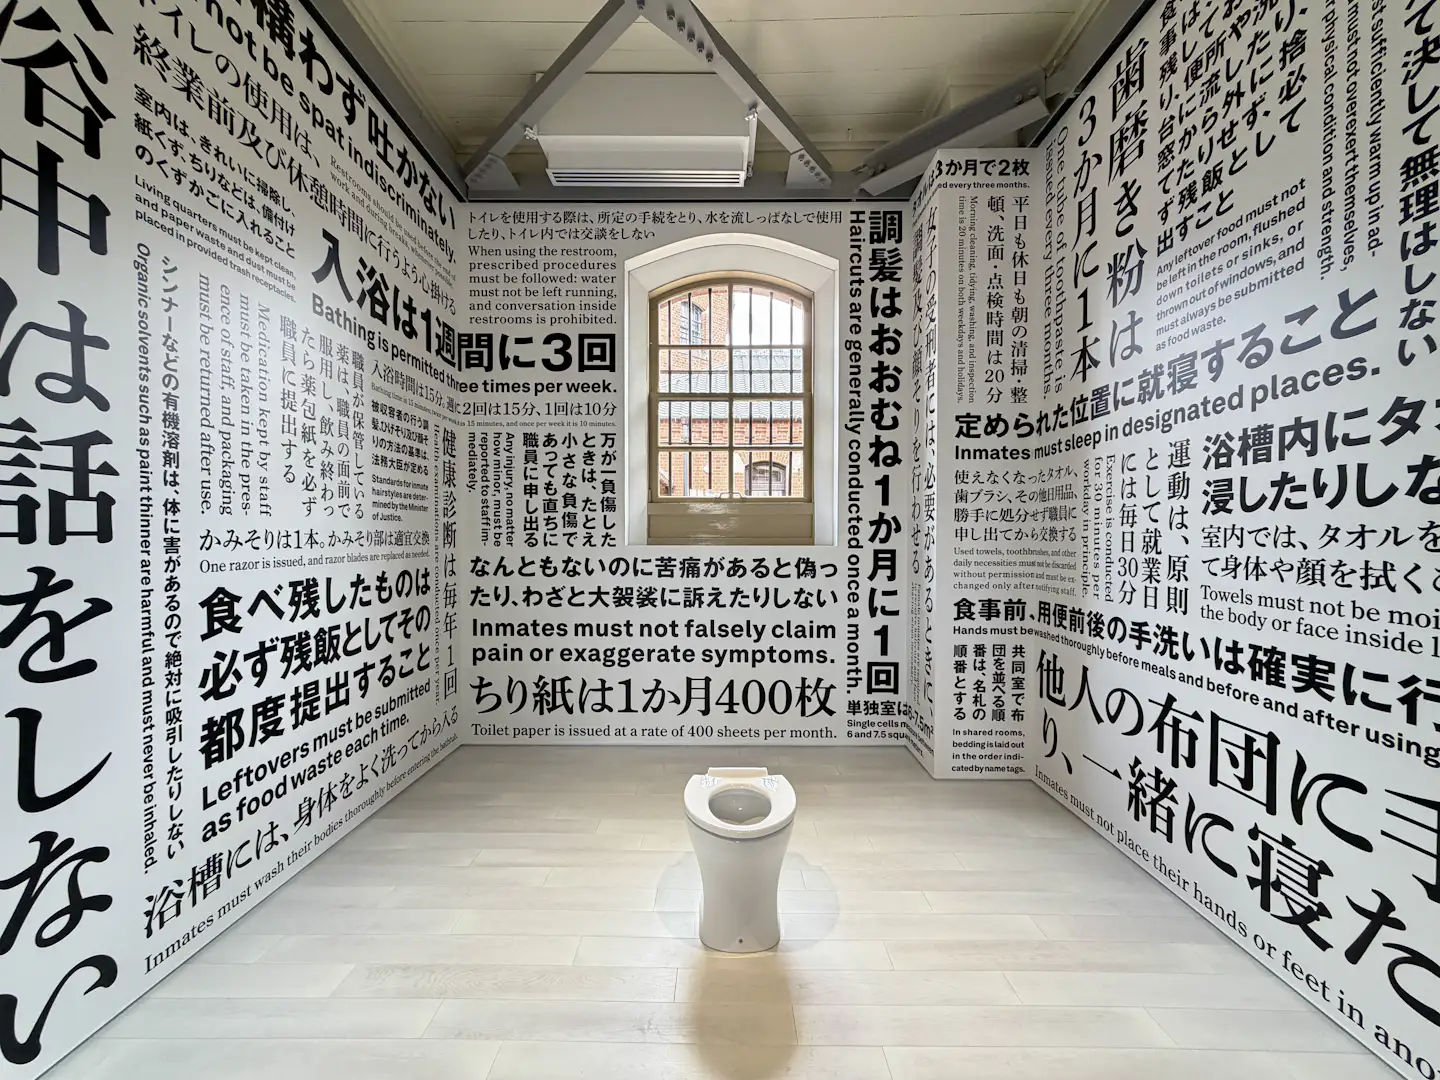 浴中は話をしない
構わず吐かない
not be spat indiscriminately.
トイレの使用は、
終業前及び休憩時間に行うよう心掛ける
Restrooms should be used before the end of
work and during breaks, whenever possible.
室内は、きれいに掃除し、
紙くず、ちりなどは、備付け
のくずかごに入れること
Living quarters must be kept clean,
and paper waste and dust must be
placed in provided trash receptacles.
シンナーなどの有機溶剤は、体に害があるので絶対に吸引したりしない
Organic solvents such as paint thinner are harmful and must never be inhaled.
入浴は1週間に3回
Bathing is permitted three times per week.
入浴時間は15分、週に2回は15分、1回は10分
職員が保管している
薬は、職員の面前で
服用し、飲み終わっ
たら薬包紙を必ず
職員に提出する
Medication kept by staff
must be taken in the pres-
ence of staff, and packaging
must be returned after use.
被収容者の行う調
髪、ひげそり及び顔そ
りの方法の基準は、
法務大臣が定める
Standards for inmate
hairstyles are deter-
mined by the Minister
of Justice.
かみそりは1本。かみそり部は適宜交換
One razor is issued, and razor blades are replaced as needed.
健康診断は毎年1回
Health examinations are conducted once per year.
食べ残したものは
必ず残飯としてその
都度提出すること
Leftovers must be submitted
as food waste each time.
浴槽には、身体をよく洗ってから入る
Inmates must wash their bodies thoroughly before entering the bathtub.
トイレを使用する際は、所定の手続をとり、水を流しっぱなしで使用
したり、トイレ内では交談をしない
When using the restroom,
prescribed procedures
must be followed: water
must not be left running,
and conversation inside
restrooms is prohibited.
万が一負傷した
ときは、たとえ
小さな負傷で
あっても直ちに
職員に申し出る
Any injury, no matter
how minor, must be
reported to staff im-
mediately.
なんともないのに苦痛があると偽っ
たり、わざと大袈裟に訴えたりしない
Inmates must not falsely claim
pain or exaggerate symptoms.
ちり紙は1か月400枚
Toilet paper is issued at a rate of 400 sheets per month.
調髪はおおむね1か月に1回
Haircuts are generally conducted once a month.
単独室は6-7.5m²
Single cells
6 and 7.5 square
女子の受刑者には、必要があるときに
調髪及び顔そりを行わせる
3か月で2枚
ed every three months.
平日も休日も朝の清掃・整
頓、洗面・点検時間は20分
Morning cleaning, tidying, washing, and inspection
time is 20 minutes on both weekdays and holidays.
定められた位置に就寝すること
Inmates must sleep in designated places.
使えなくなったタオル、
歯ブラシ、その他日用品、
勝手に処分せず職員に
申し出てから交換する
Used towels, toothbrushes, and other
daily necessities must not be discarded
without permission and must be ex-
changed only after notifying staff.
食事前、用便前後の手洗いは確実に行
Hands must be washed thoroughly before meals and before and after using
共同室で布
団を並べる順
番は、名札の
順番とする
In shared rooms,
bedding is laid out
in the order indi-
cated by name tags.
歯磨き粉は
3か月に1本
One tube of toothpaste is
issued every three months.
Any leftover food must not
be left in the room, flushed
down toilets or sinks, or
thrown out of windows, and
must always be submitted
as food waste.
st sufficiently warm up in ad-
must not overexert themselves,
r physical condition and strength.
て決して無理はしない
運動は、原則
として就業日
には毎日30分
Exercise is conducted
for 30 minutes per
workday in principle.
浴槽内にタオ
浸したりしな
室内では、タオルを
て身体や顔を拭くこ
Towels must not be moi
the body or face inside l
他人の布団に手
り、一緒に寝た
Inmates must not place their hands or feet in ano